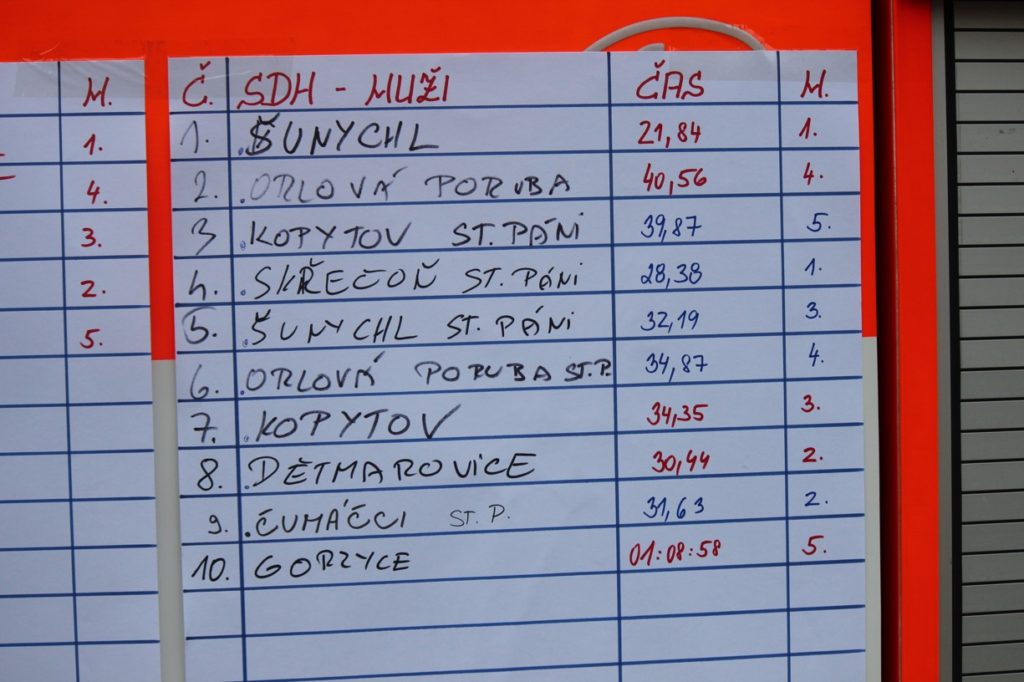 M.
1.
4.
3.
2.
5.
Č. SDH - MUŽI ČAS M.
1. ŠUNYCHL 21,84 1.
2. ORLOVÁ PORUBA 40,56 4.
3 KOPYTOV ST. PÁNI 39,87 5.
4. SKŘEČOŇ ST. PÁNI 28,38 1.
5. ŠUNYCHL ST. PÁNI 32,19 3.
6. ORLOVÁ PORUBA ST. P. 34,87 4.
7. KOPYTOV 34,35 3.
8. DĚTMAROVICE 30,44 2.
9. ČUMÁČCI ST. P. 31,63 2.
10. GORZYCE 01:08:58 5.